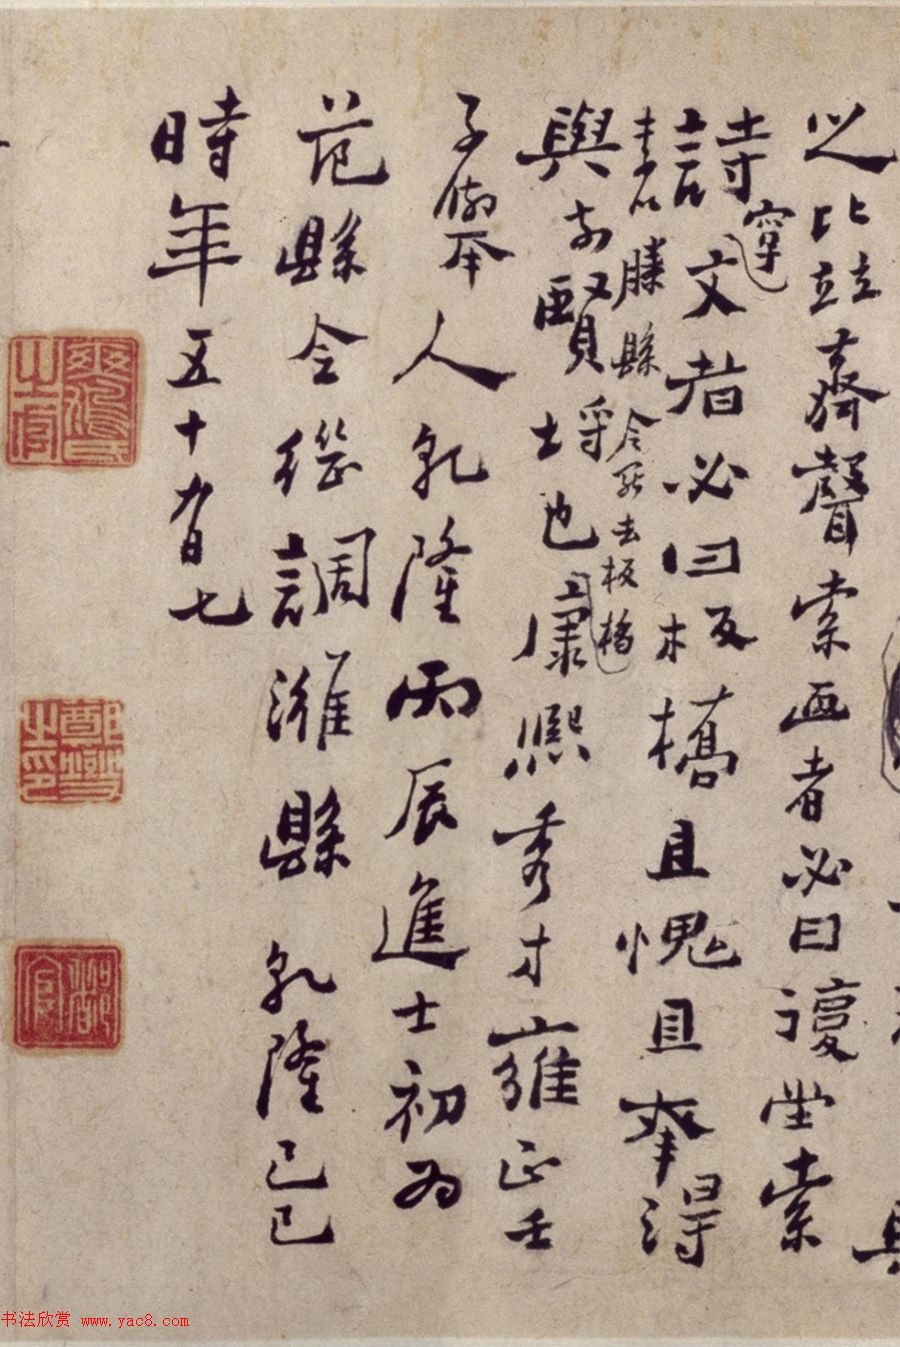 之比竝齊聲索画者必曰復堂索
詩字文者必曰板橋且愧且幸得
李以滕縣令罷去板橋
與前賢埒也康熙秀才雍正壬
子舉人乾隆丙辰進士初為
范縣令繼調濰縣乾隆己巳
時年五十有七
鄭燮之印
书法欣赏 www.yac8.com